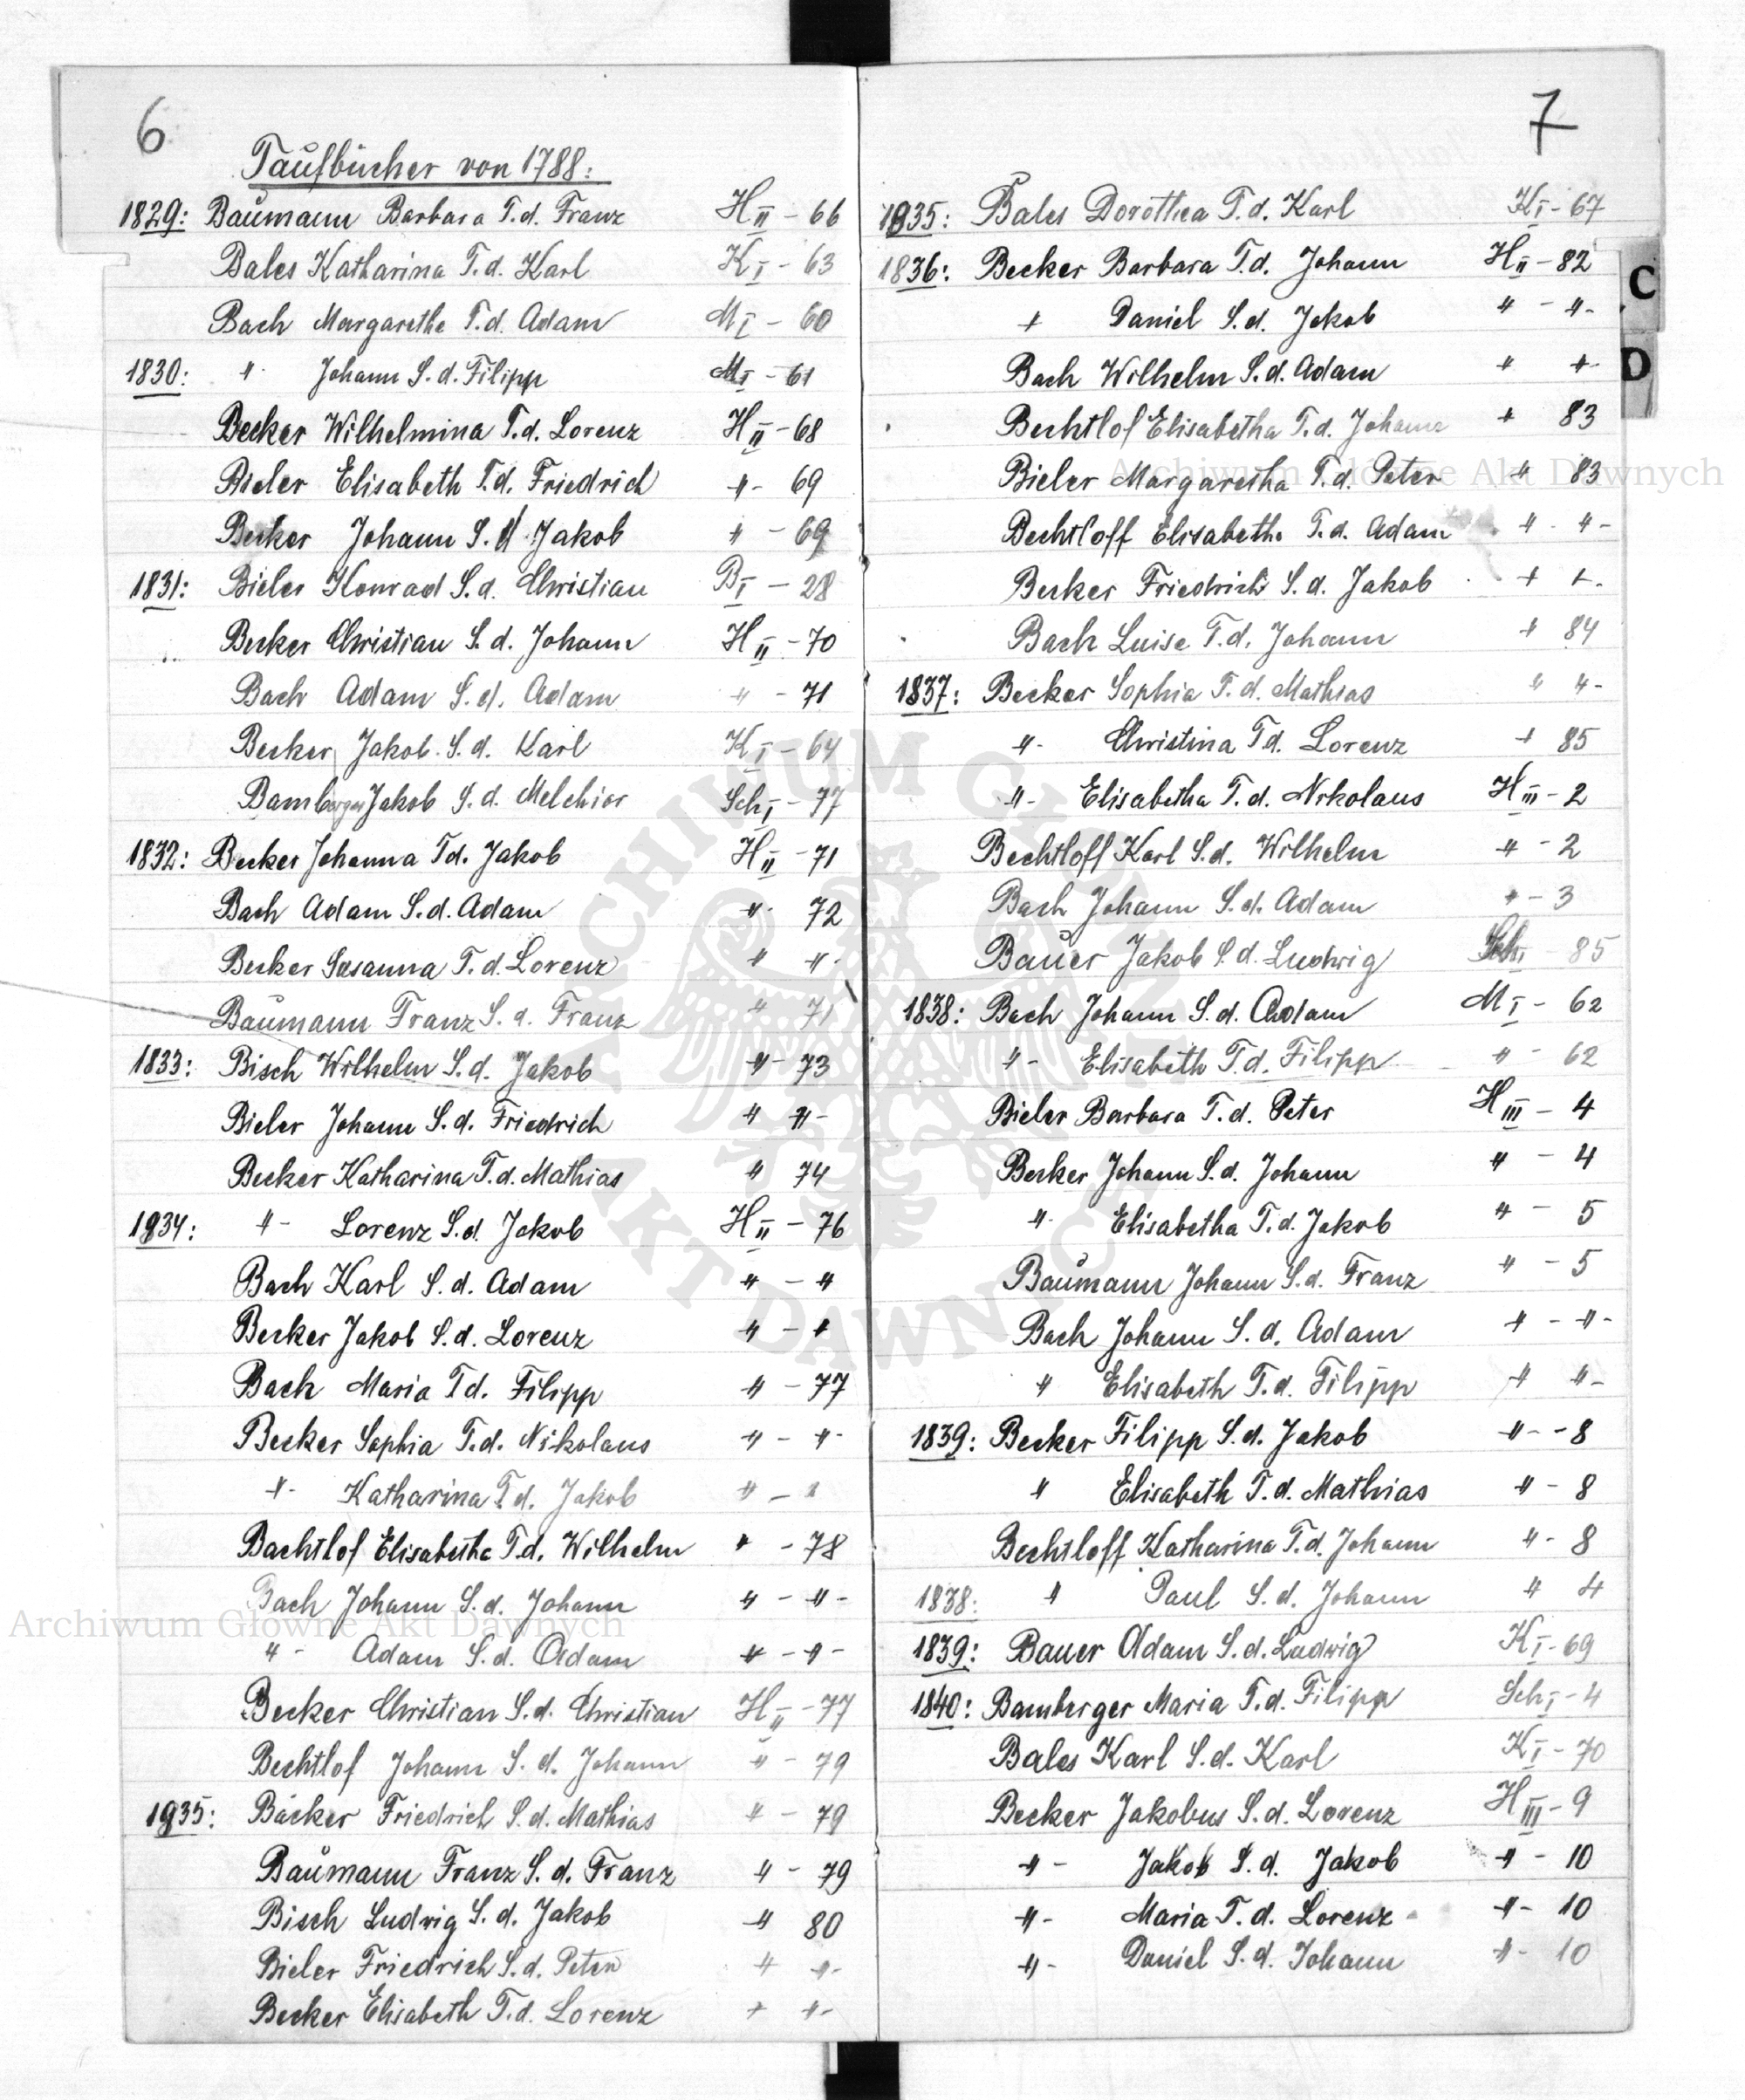 6
Taufbücher von 1788:
1829: Baumann Barbara T.d. Franz H II - 66
Bales Katharina T.d. Karl K I - 63
Bach Margarethe T.d. Adam M I - 60
1830: " Johann S.d. Filipp M I - 61
Becker Wilhelmina T.d. Lorenz H II - 68
Bieler Elisabeth T.d. Friedrich " - 69
Becker Johann S.d. Jakob " - 69
1831: Bieler Konrad S.d. Christian B I - 28
Becker Christian S.d. Johann H II - 70
Bach Adam S.d. Adam " - 71
Becker Jakob S.d. Karl K I - 64
Bamberger Jakob S.d. Melchior Sch I - 77
1832: Becker Johanna T.d. Jakob H II - 71
Bach Adam S.d. Adam " - 72
Becker Susanna T.d. Lorenz " " -
Baumann Franz S.d. Franz " 71
1833: Bisch Wilhelm S.d. Jakob " - 73
Bieler Johann S.d. Friedrich " " -
Becker Katharina T.d. Mathias " 74
1934: " - Lorenz S.d. Jakob H II - 76
Bach Karl S.d. Adam " - "
Becker Jakob S.d. Lorenz " - "
Bach Maria T.d. Filipp " - 77
Becker Sophia T.d. Nikolaus " - " -
" - Katharina T.d. Jakob " - "
Bachtlof Elisabetha T.d. Wilhelm " - 78
Bach Johann S.d. Johann " - " -
" - Adam S.d. Adam " - " -
Becker Christian S.d. Christian H II - 77
Bechtlof Johann S.d. Johann " - 79
1935: Bäcker Friedrich S.d. Mathias " - 79
Baumann Franz S.d. Franz " - 79
Bisch Ludwig S.d. Jakob " 80
Bieler Friedrich S.d. Peter " " -
Becker Elisabeth T.d. Lorenz " " -
7
1935: Bales Dorothea T.d. Karl K I - 67
1836: Becker Barbara T.d. Johann H II - 82
" Daniel S.d. Jakob " - " -
Bach Wilhelm S.d. Adam " "
Bechtlof Elisabetha T.d. Johann " 83
Bieler Margaretha T.d. Peter " 83
Bechtloff Elisabetha T.d. Adam " - " -
Becker Friedrich S.d. Jakob " " -
Bach Luise T.d. Johann " 84
1837: Becker Sophia T.d. Mathias " " -
" - Christina T.d. Lorenz " 85
" - Elisabetha T.d. Nikolaus H III - 2
Bechtloff Karl S.d. Wilhelm " - 2
Bach Johann S.d. Adam " - 3
Bauer Jakob S.d. Ludwig Sch I - 85
1838: Bach Johann S.d. Adam M I - 62
" - Elisabeth T.d. Filipp " - 62
Bieler Barbara T.d. Peter H III - 4
Becker Johann S.d. Johann " - 4
" - Elisabetha T.d. Jakob " - 5
Baumann Johann S.d. Franz " - 5
Bach Johann S.d. Adam " - " -
" Elisabeth T.d. Filipp " " -
1839: Becker Filipp S.d. Jakob " - - 8
" Elisabeth T.d. Mathias " - 8
Bechtloff Katharina T.d. Johann " - 8
1838: " Paul S.d. Johann " 4
1839: Bauer Adam S.d. Ludwig K I - 69
1840: Bamberger Maria T.d. Filipp Sch I - 4
Bales Karl S.d. Karl K I - 70
Becker Jakobus S.d. Lorenz H III - 9
" - Jakob S.d. Jakob " - 10
" - Maria T.d. Lorenz " - 10
" - Daniel S.d. Johann " - 10
C
D
Archiwum Główne Akt Dawnych
Archiwum Główne Akt Dawnych
ARCHIWUM GŁÓWNE AKT DAWNYCH